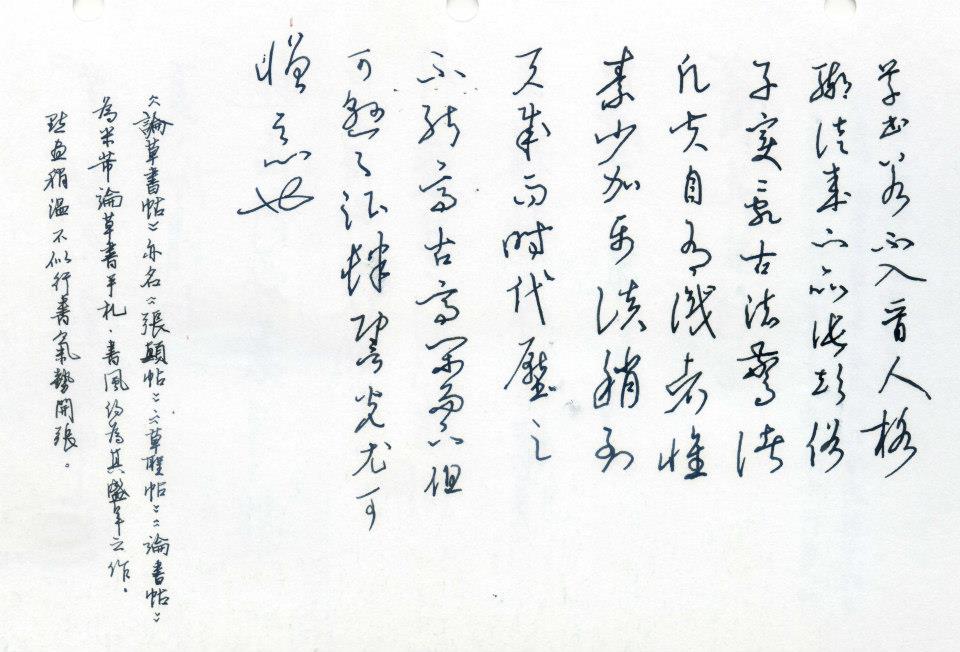 草書若不入晉人格
輒徒成下品張顛俗
子變亂古法驚諸
凡夫自有識者懷
素少加平淡稍到
天成而時代壓之
不能高古高閑而下但
可懸之酒肆䛒光尤可
憎惡也
《論草書帖》亦名《張顛帖》《草聖帖》《論書帖》
為米芾論草書手札，書風約為其盛年之作。
點畫稍溫不似行書氣勢開張。